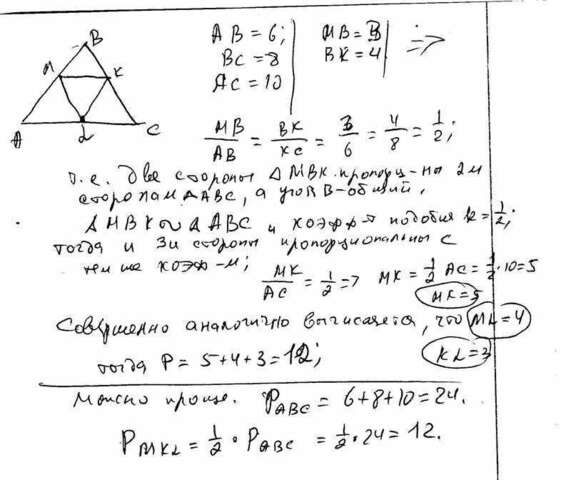 B
M
K
A
L
C
AB = 6;
BC = 8
AC = 10
MB = 3
BK = 4
=>
MB/AB = BK/KC = 3/6 = 4/8 = 1/2;
т.е. две стороны Δ MBK пропорц-ны 2м
сторонам Δ ABC, а угол B - общий.
Δ MBK ~ Δ ABC и коэфф-т подобия k = 1/2;
тогда и 3и стороны пропорциональны с
тем же коэф-м;
MK/AC = 1/2 => MK = 1/2 AC = 1/2 · 10 = 5
MK = 5
Совершенно аналогично вычисляется, что ML = 4
KL = 3
тогда P = 5 + 4 + 3 = 12;
Можно проще. P ABC = 6 + 8 + 10 = 24.
P MKL = 1/2 · P ABC = 1/2 · 24 = 12.